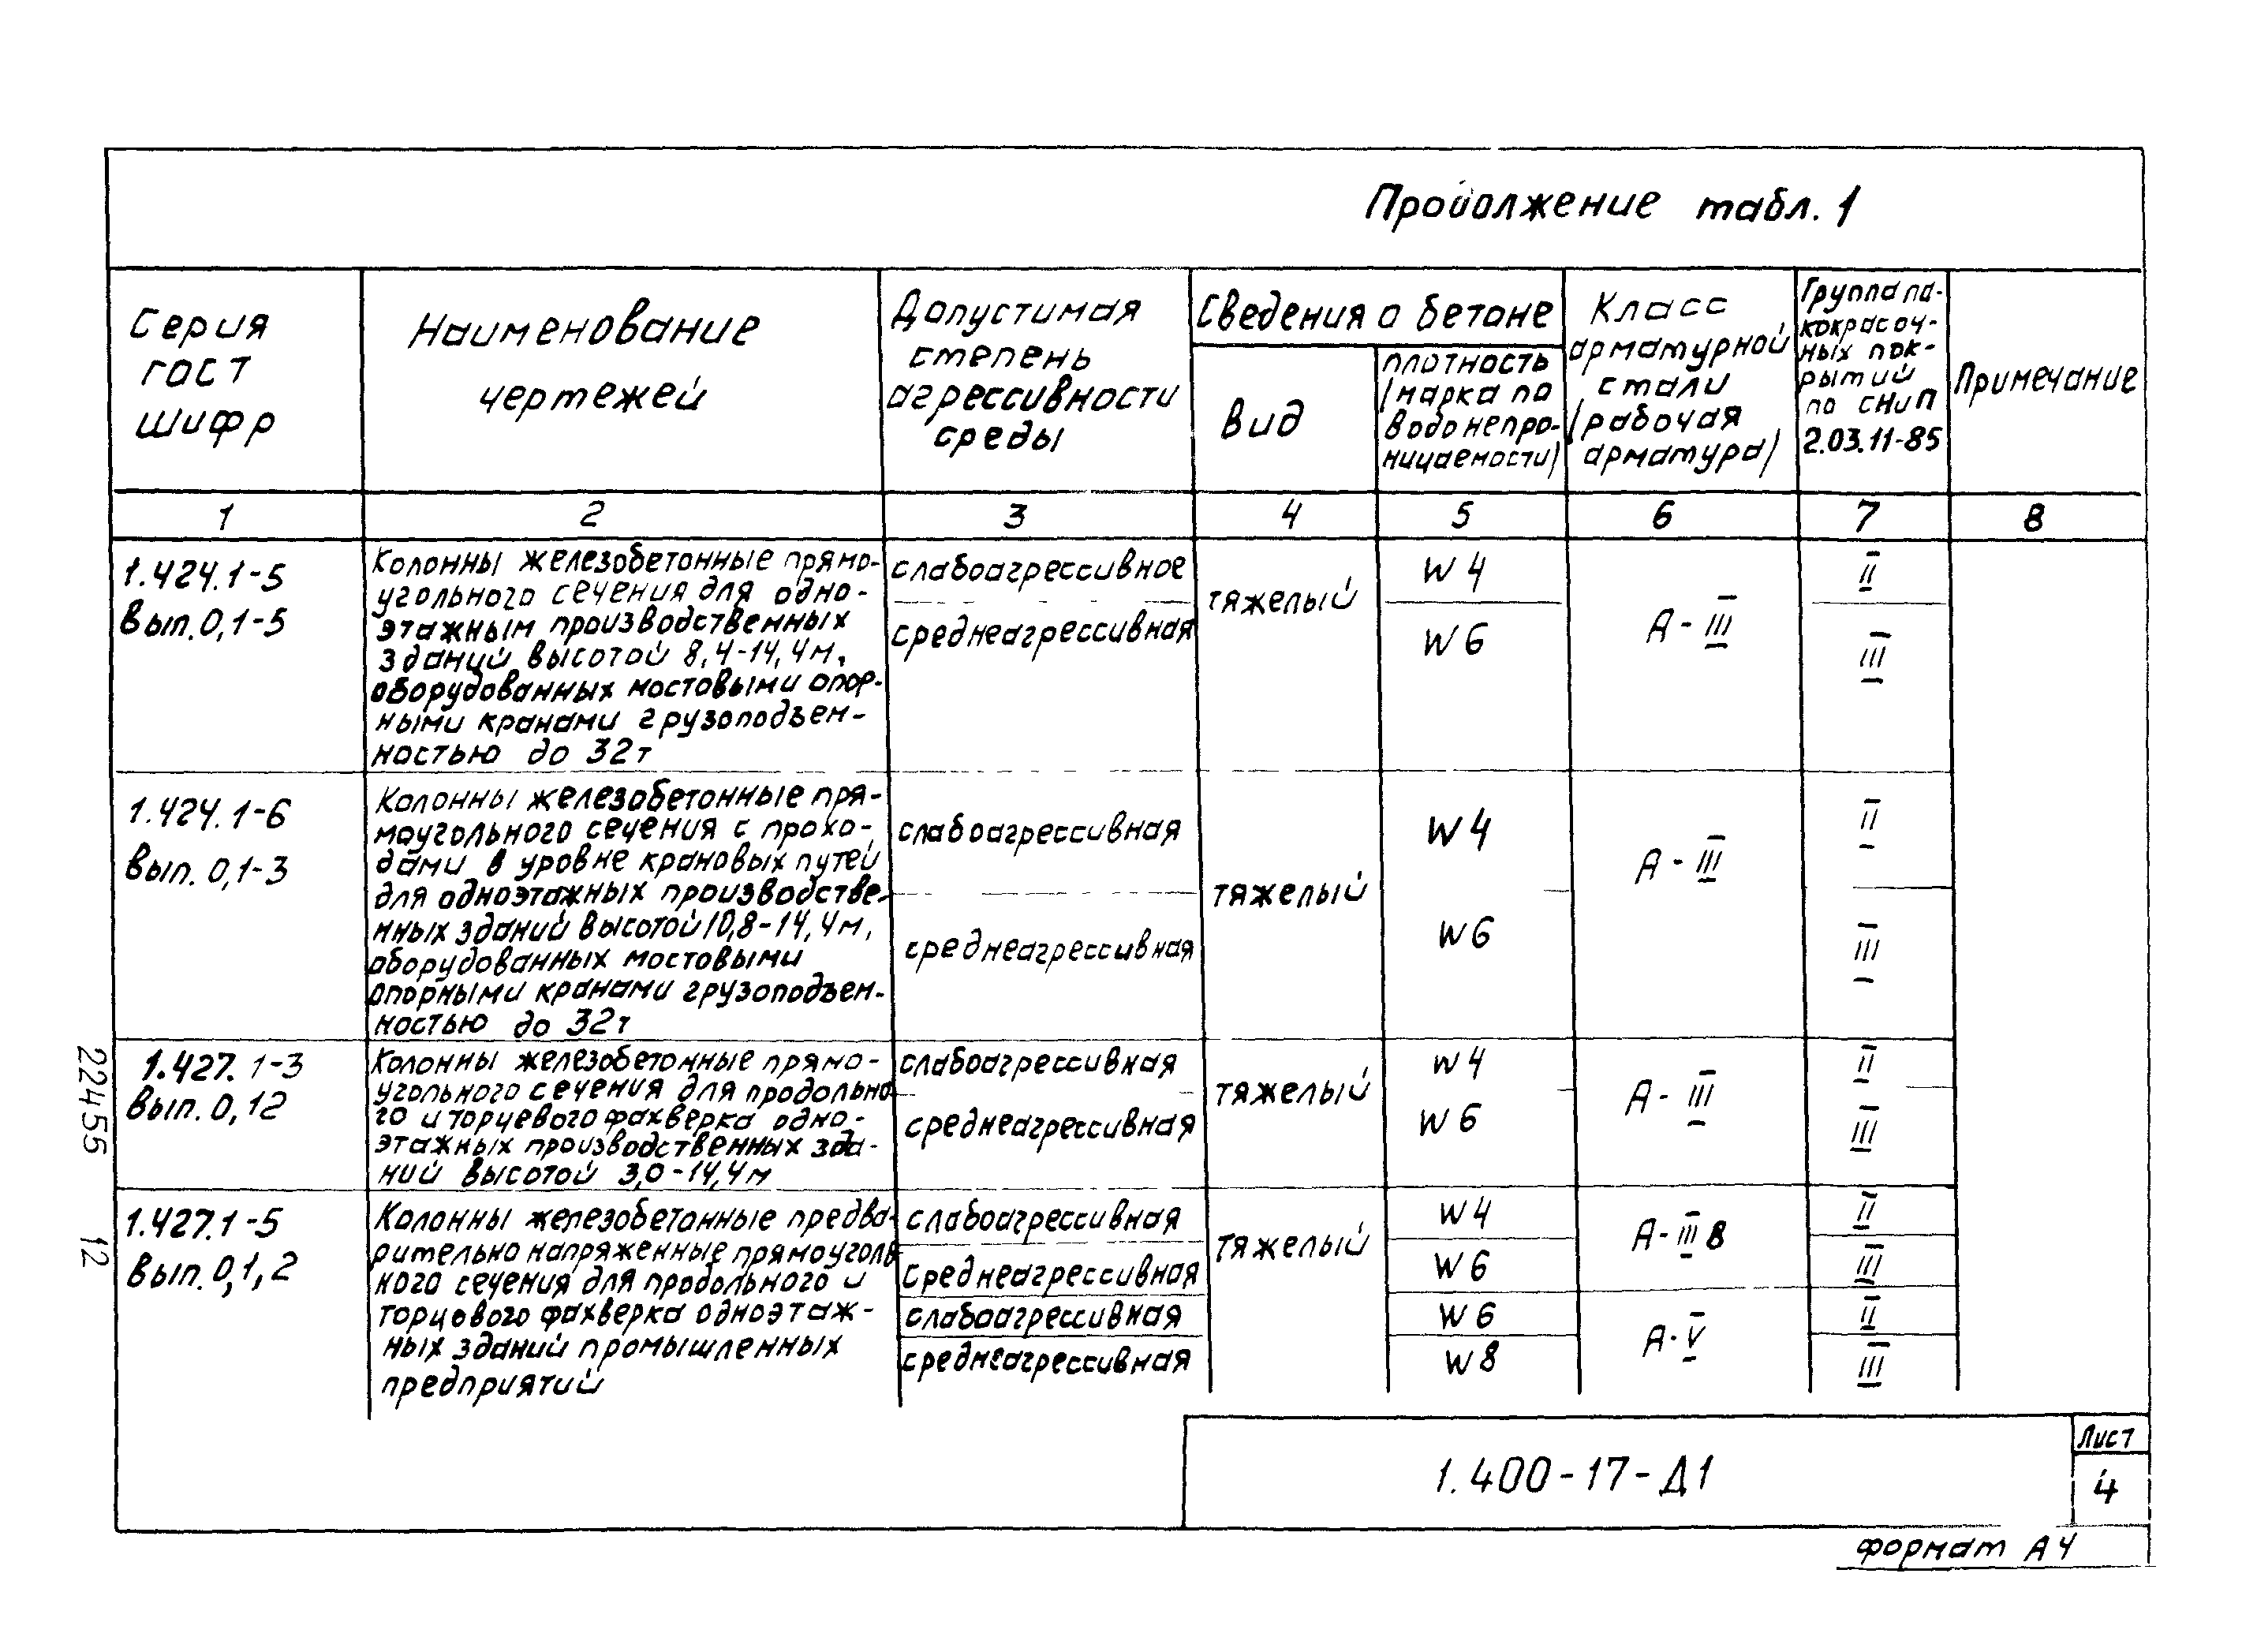 Продолжение табл. 1
Серия
гост
шифр
Наименование
чертежей
Допустимая
степень
агрессивности
среды
Сведения о бетоне
Вид
плотность
(марка по
водонепро-
ницаемости)
Класс
арматурной
стали
(рабочая
арматура)
Группа ла-
кокрасоч-
ных пок-
рытий
по СНиП
2.03.11-85
Примечание
1 2 3 4 5 6 7 8
1.424.1-5
Вып. 0,1-5
Колонны железобетонные прямо-
угольного сечения для одно-
этажным производственных
зданий высотой 8,4-14,4м,
оборудованных мостовыми опор-
ными кранами грузоподъем-
ностью до 32т
слабоагрессивное
среднеагрессивная
тяжелый
W4
W6
А-III
II
III
1.424.1-6
Вып. 0,1-3
Колонны железобетонные пря-
моугольного сечения с прохо-
дами в уровне крановых путей
для одноэтажных производстве-
нных зданий высотой 10,8-14,4м,
оборудованных мостовыми
опорными кранами грузоподъем-
ностью до 32т
слабоагрессивная
среднеагрессивная
тяжелый
W4
W6
А-III
II
III
1.427.1-3
Вып. 0,12
Колонны железобетонные прямо-
угольного сечения для продольно-
го и торцевого фахверка одно-
этажных производственных зда-
ний высотой 3,0-14,4м
слабоагрессивная
среднеагрессивная
тяжелый
W4
W6
А-III
II
III
1.427.1-5
Вып. 0,1,2
Колонны железобетонные предва-
рительно напряженные прямоуголь
ного сечения для продольного и
торцового фахверка одноэтаж-
ных зданий промышленных
предприятий
слабоагрессивная
среднеагрессивная
слабоагрессивная
среднеагрессивная
тяжелый
W4
W6
W6
W8
А-III в
А-V
II
III
II
III
22455 12
1.400-17-Д1
Лист
4
формат А4